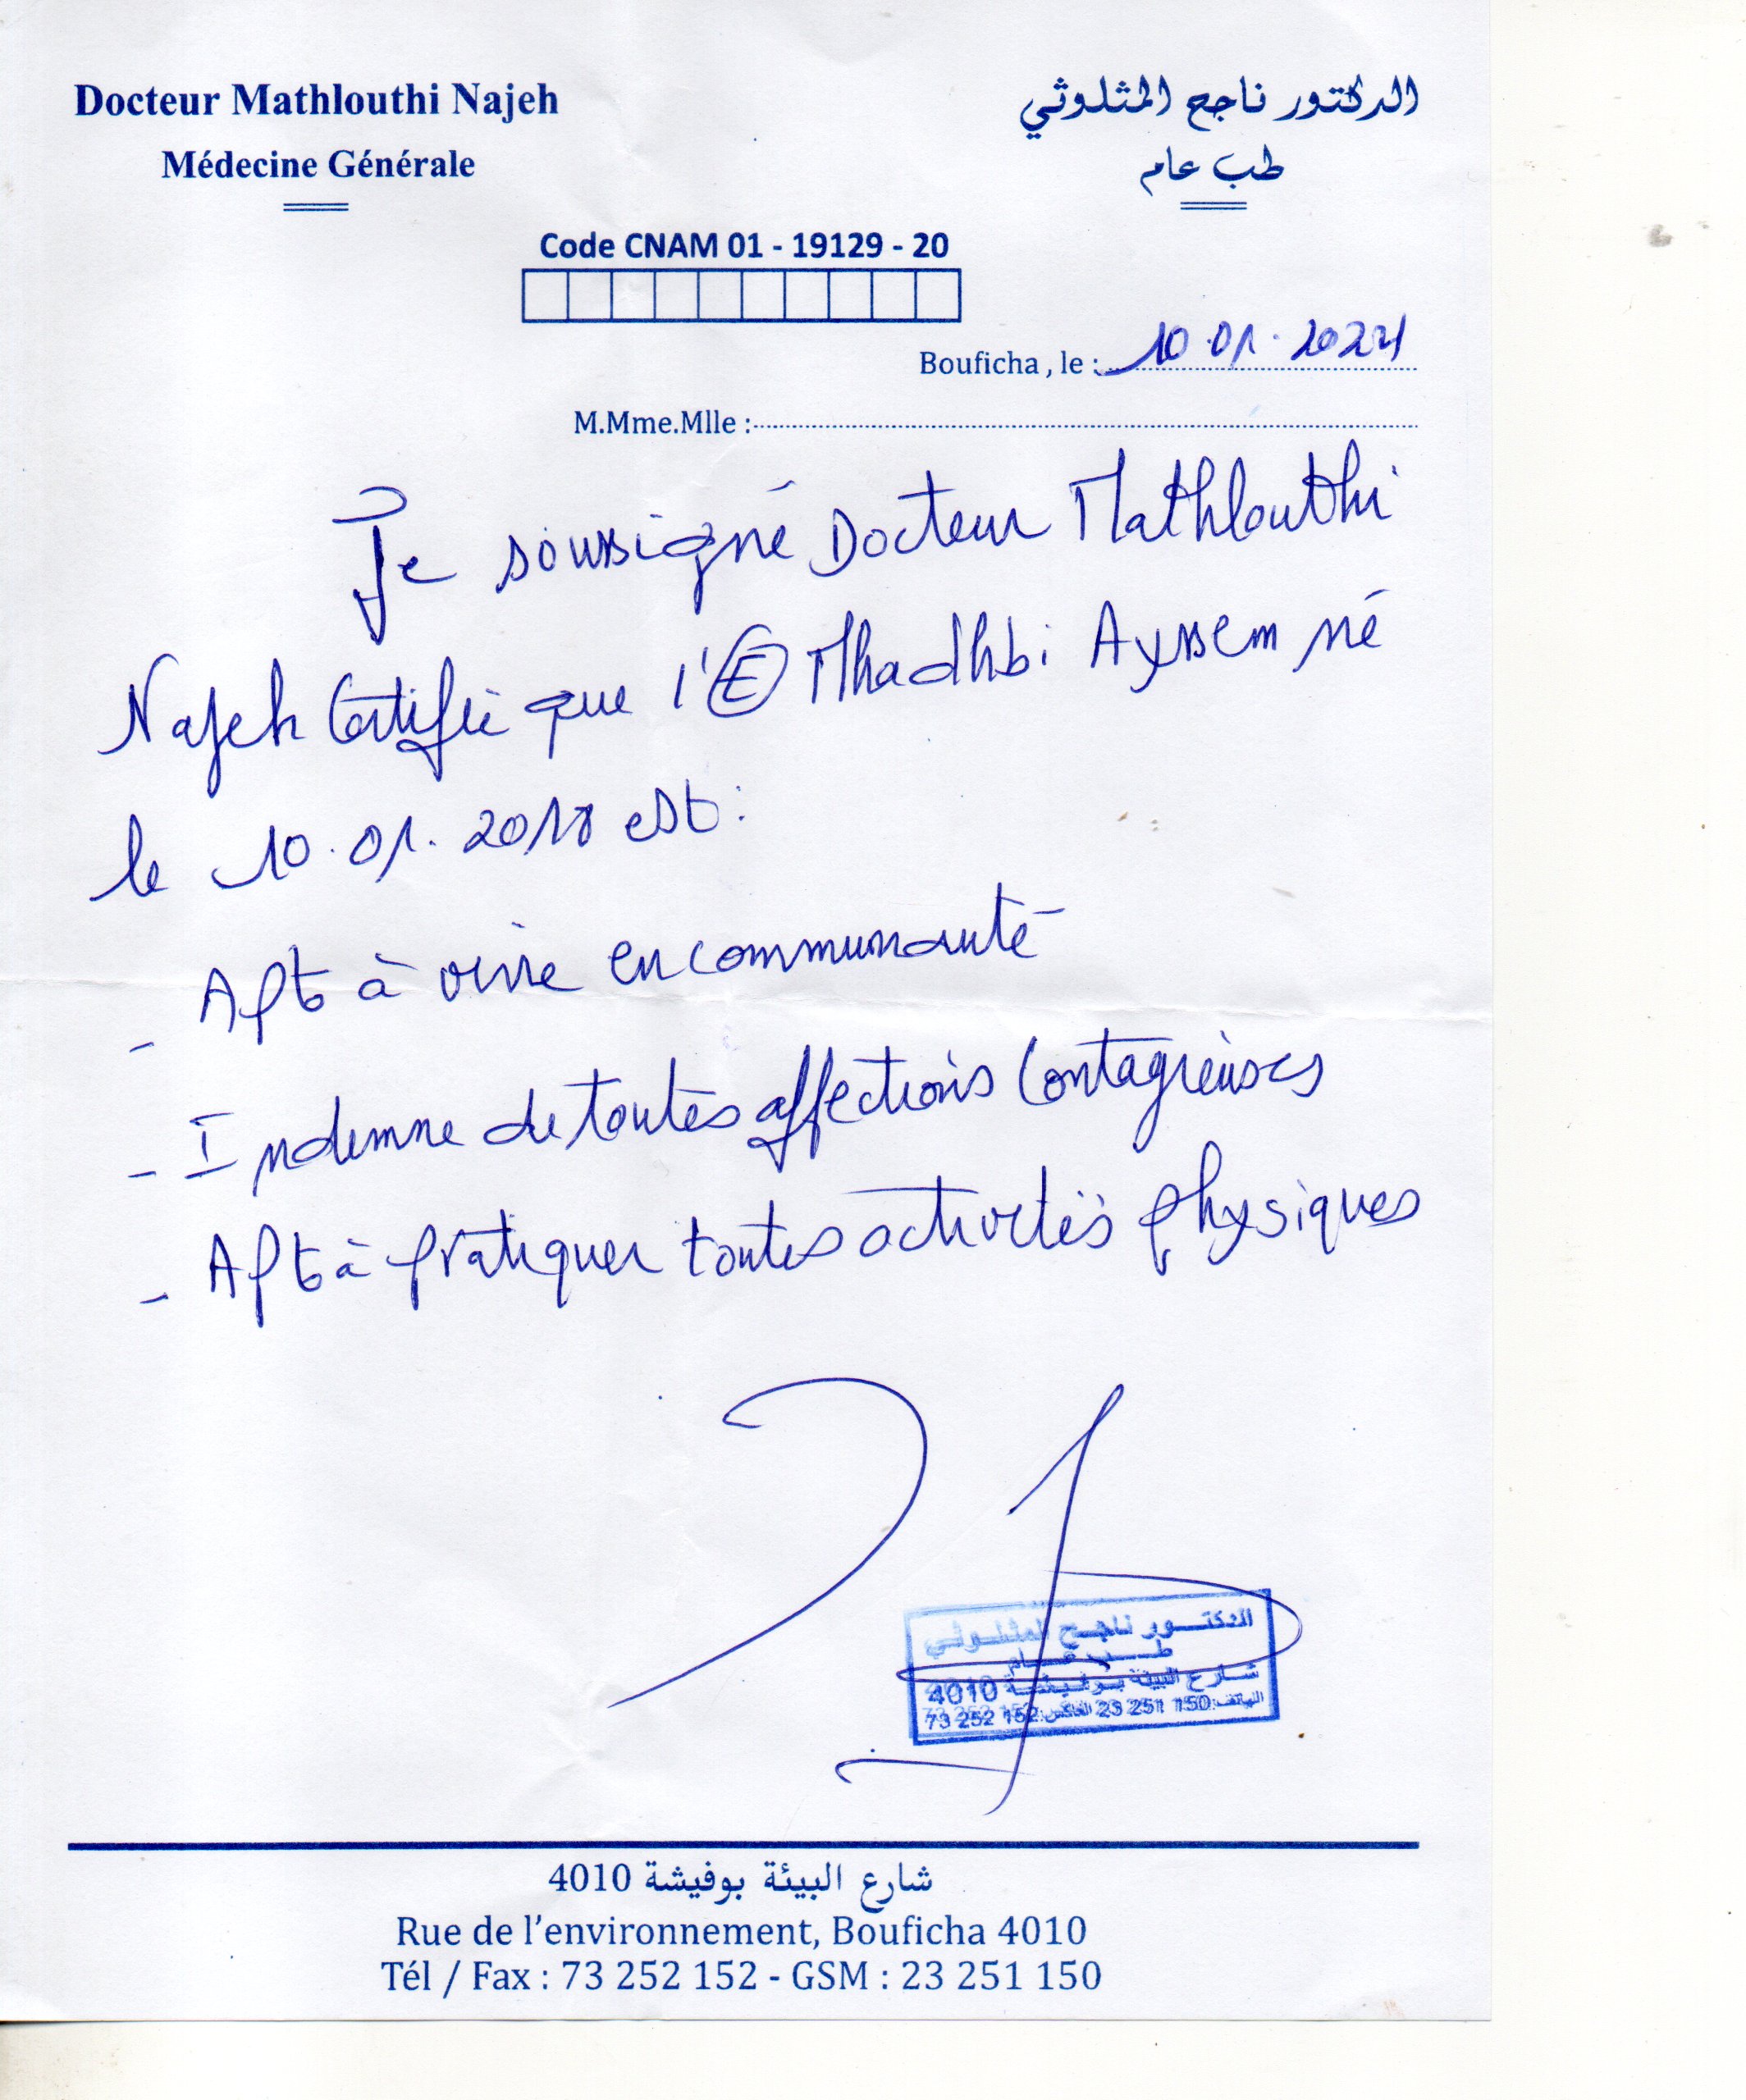 Docteur Mathlouthi Najeh
Médecine Générale
الدكتور ناجح المثلوثي
طب عام
Code CNAM 01 - 19129 - 20
Bouficha , le : 10.01.2024
M.Mme.Mlle :
Je soussigné Docteur Mathlouthi
Najeh Certifie que l'E Mhadhbi Ayssem né
le 10.01.2018 est :
- Apt à vivre en communauté
- Indemne de toutes affections Contagieuses
- Apt à pratiquer toutes activités physiques
الدكتور ناجح المثلوثي
طب عام
شارع البيئة بوفيشة 4010
الهاتف: 150 251 23 الفاكس: 152 252 73
شارع البيئة بوفيشة 4010
Rue de l'environnement, Bouficha 4010
Tél / Fax : 73 252 152 - GSM : 23 251 150